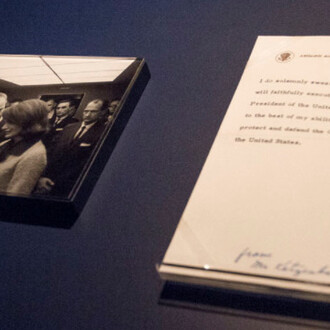 I do solemnly swea
will faithfully execut
President of the Unit
to the best of my abil
protect and defend the
the United States.
from